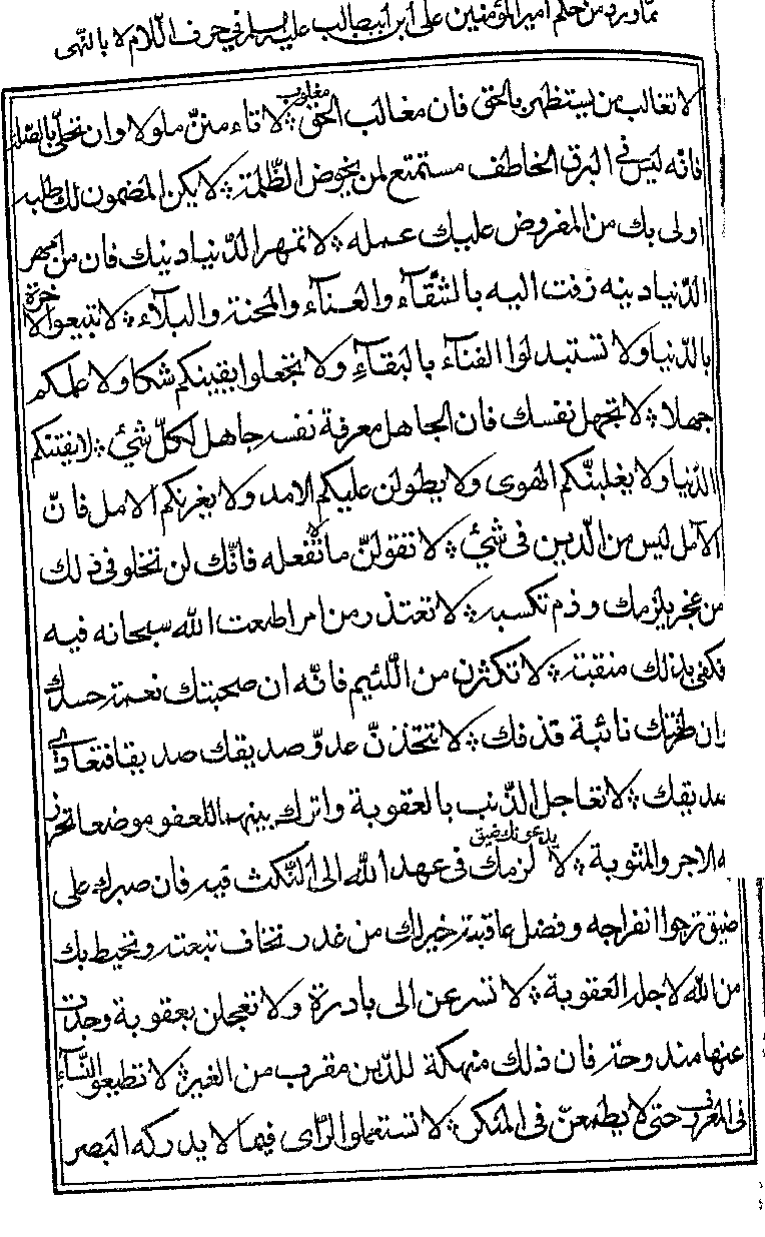 مما ورد من حكم أمير المؤمنين على ابن أبيطالب عليه السلم في حرف اللام لا بالنهى
لا تغالب من يستظهر بالحق فان مغالب الحق مغلوب لا تاء منن ملولا وان تحلى بالصلة
فانه ليس في البرق الخاطف مستمتع لمن يخوض الظلمة لا يكن المضمون لك طلبه
اولى بك من المفروض عليك عمله لا تمهر الدنيا دينك فان من امهر
الدنيا دينه زفت اليه بالشقاء والعناء والمحنة والبلاء لا تبيعوا الاخرة
بالدنيا ولا تستبدلوا الفناء بالبقاء ولا تجعلوا يقينكم شكا ولا علمكم
جهلا لا تجهل نفسك فان الجاهل معرفة نفسه جاهل لكل شيء لا يفتننكم
الدنيا ولا يغلبنكم الهوى ولا يطولن عليكم الامد ولا يغرنكم الامل فان
الامل ليس من الدين في شيء لا تقولن ما لا تفعله فانك لن تخلو في ذلك
من عجز يلزمك وذم تكسبه لا تعتذر من امر اطعت الله سبحانه فيه
فكفى بذلك منقبة لا تكثرن من اللئيم فانه ان صحبتك نعمة حسدك
وان طرقتك نائبة قذفك لا تتخذن عدو صديقك صديقا فتعادى
صديقك لا تعاجل الذنب بالعقوبة واترك بينهما للعفو موضعا تحرز
به الاجر والمثوبة لا يدعونك ضيق لزمك في عهد الله الى النكث فيه فان صبرك على
ضيق ترجوا انفراجه وفضل عاقبته خير لك من غدر تخاف تبعته وتحيط بك
من الله لاجله العقوبة لا تسرعن الى بادرة ولا تعجلن بعقوبة وجدت
عنها مندوحة فان ذلك منهكة للدين مقرب من الغير لا تطيعوا النساء
في المعروف حتى لا يطمعن في المنكر لا تستعملوا الراى فيما لا يدركه البصر